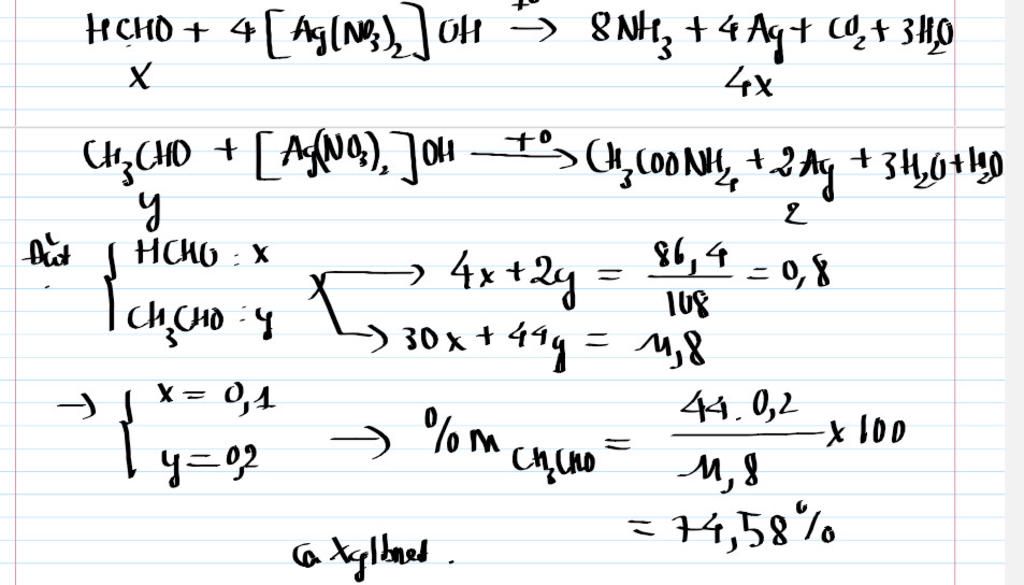 HCHO + 4[Ag(NO₃)₂]OH —t⁰→ 8NH₃ + 4Ag + CO₂ + 3H₂O
x 4x
CH₃CHO + [Ag(NO₃)₂]OH —t⁰→ CH₃COONH₄ + 2Ag + 3H₂O + H₂O
y 2
Đặt { HCHO : x → 4x + 2y = 86,4/108 = 0,8
CH₃CHO : y → 30x + 44y = 11,8
→ { x = 0,1
y = 0,2 → %m CH₃CHO = 44.0,2/11,8 x 100
= 74,58%